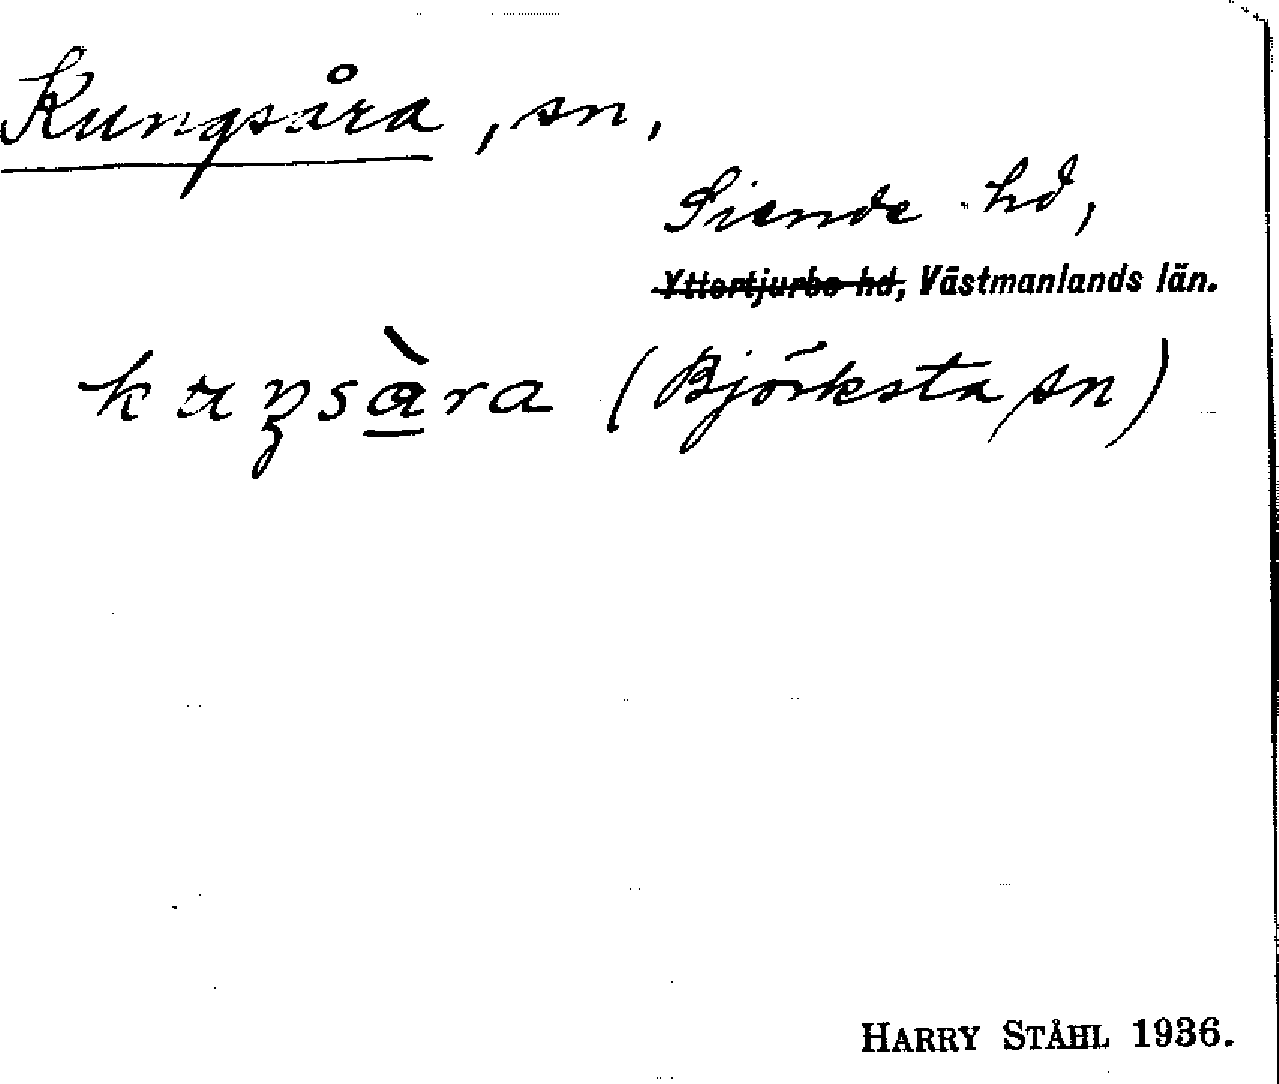 Kungsåra, sn,
Siende hd,
Yttertjurbo hd, Västmanlands län.
kuŋsàra (Björksta sn)
HARRY STÅHL 1936.